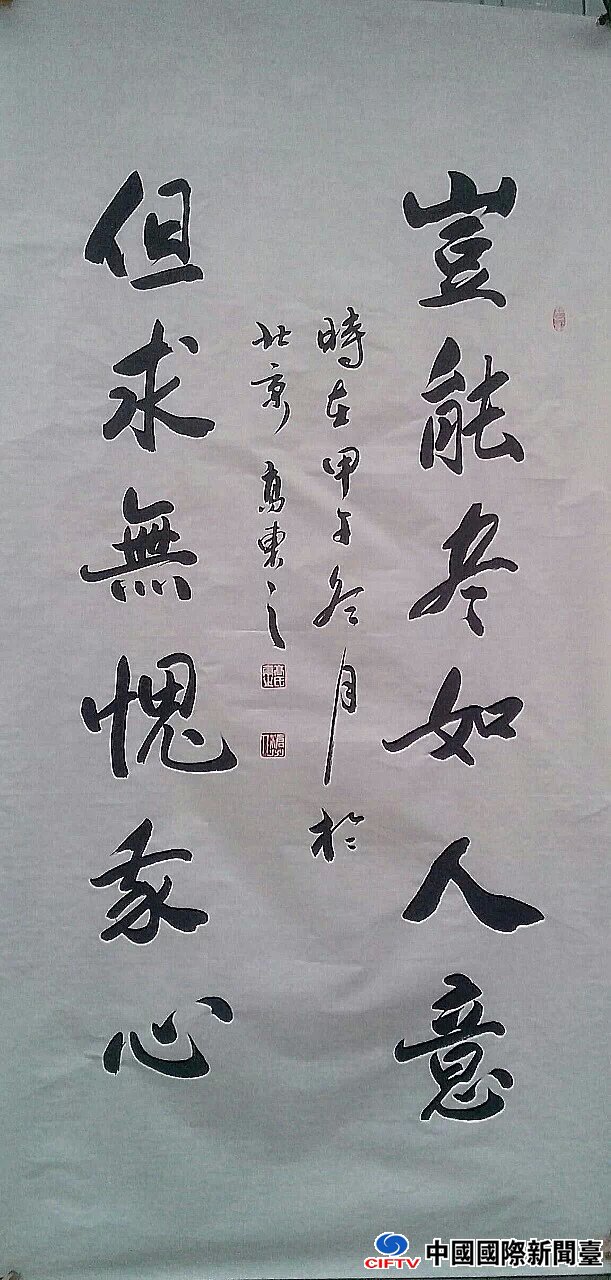 豈能尽如人意
時在甲午冬月於
北京 高東之
但求無愧我心
CIFTV 中國國際新聞臺